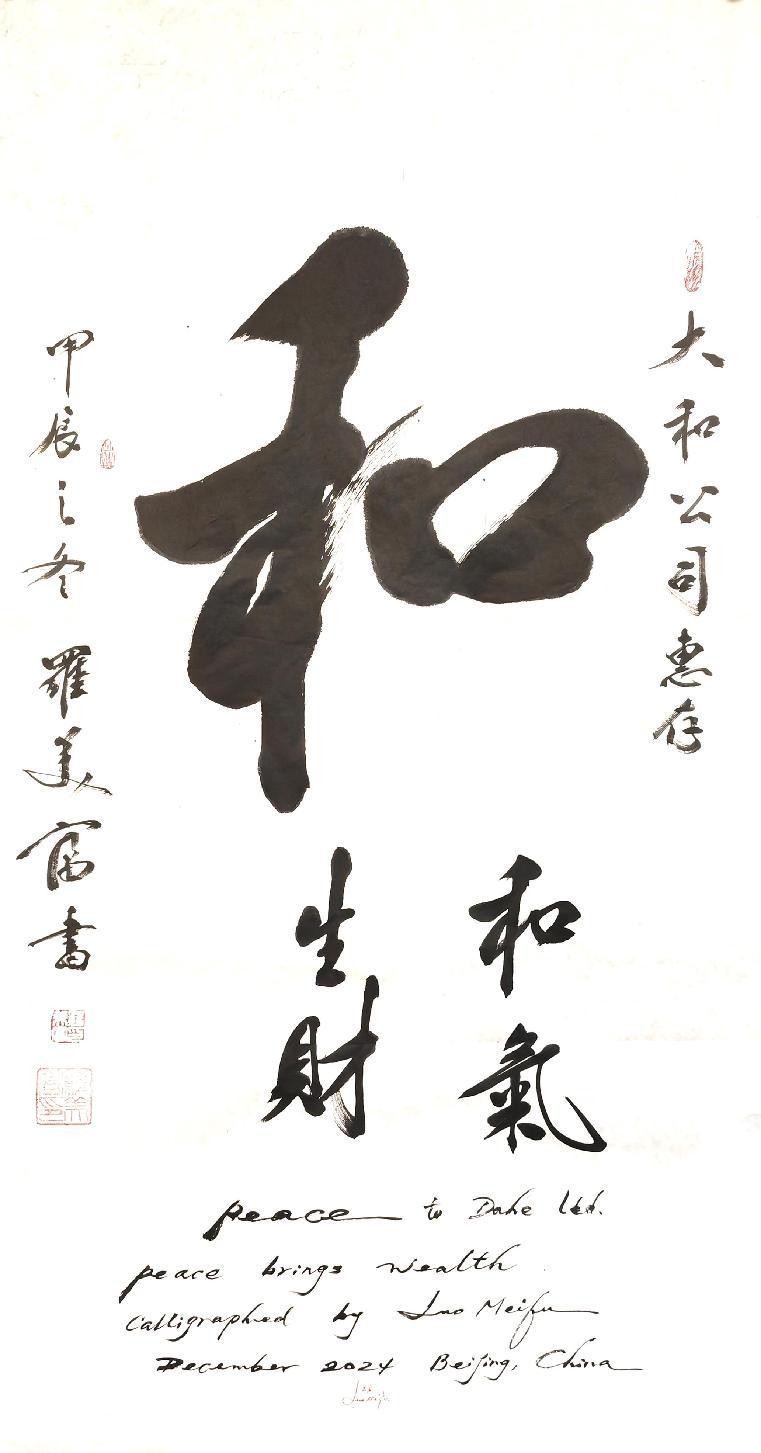 大和公司惠存
和
和氣
生財
甲辰之冬 羅美富書
peace to Dahe Ltd.
peace brings wealth
Calligraphed by Luo Meifu
December 2024 Beijing, China